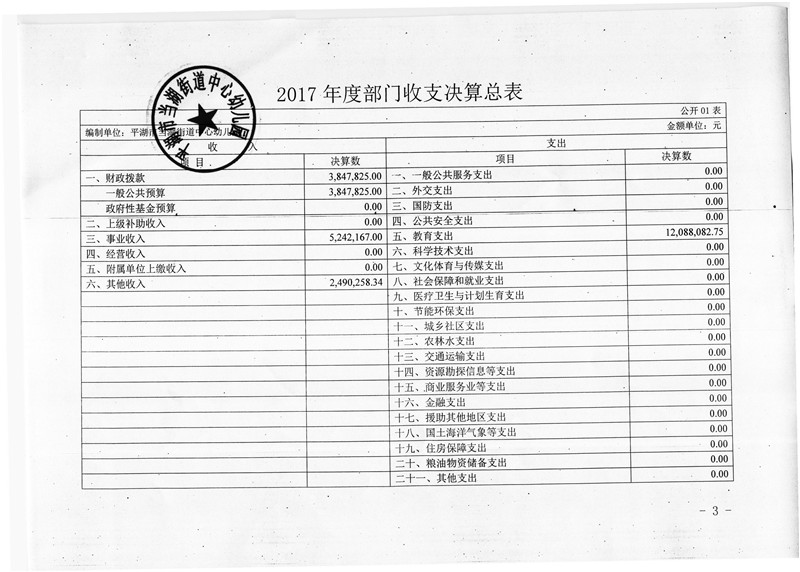 2017 年度部门收支决算总表
公开 01 表
编制单位：平湖市当湖街道中心幼儿园 金额单位：元
收 入 支出
项目 决算数 项目 决算数
一、财政拨款 3,847,825.00 一、一般公共服务支出 0.00
一般公共预算 3,847,825.00 二、外交支出 0.00
政府性基金预算 0.00 三、国防支出 0.00
二、上级补助收入 0.00 四、公共安全支出 0.00
三、事业收入 5,242,167.00 五、教育支出 12,088,082.75
四、经营收入 0.00 六、科学技术支出 0.00
五、附属单位上缴收入 0.00 七、文化体育与传媒支出 0.00
六、其他收入 2,490,258.34 八、社会保障和就业支出 0.00
九、医疗卫生与计划生育支出 0.00
十、节能环保支出 0.00
十一、城乡社区支出 0.00
十二、农林水支出 0.00
十三、交通运输支出 0.00
十四、资源勘探信息等支出 0.00
十五、商业服务业等支出 0.00
十六、金融支出 0.00
十七、援助其他地区支出 0.00
十八、国土海洋气象等支出 0.00
十九、住房保障支出 0.00
二十、粮油物资储备支出 0.00
二十一、其他支出 0.00
- 3 -
平湖市当湖街道中心幼儿园